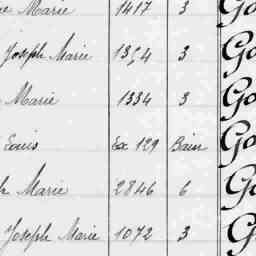 Marie 1417 3 Go
Joseph Marie 1354 3 Go
Marie 1334 3 Go
Louis Ex 129 Bain Go
h Marie 2846 6 Go
Joseph Marie 1072 3 Go